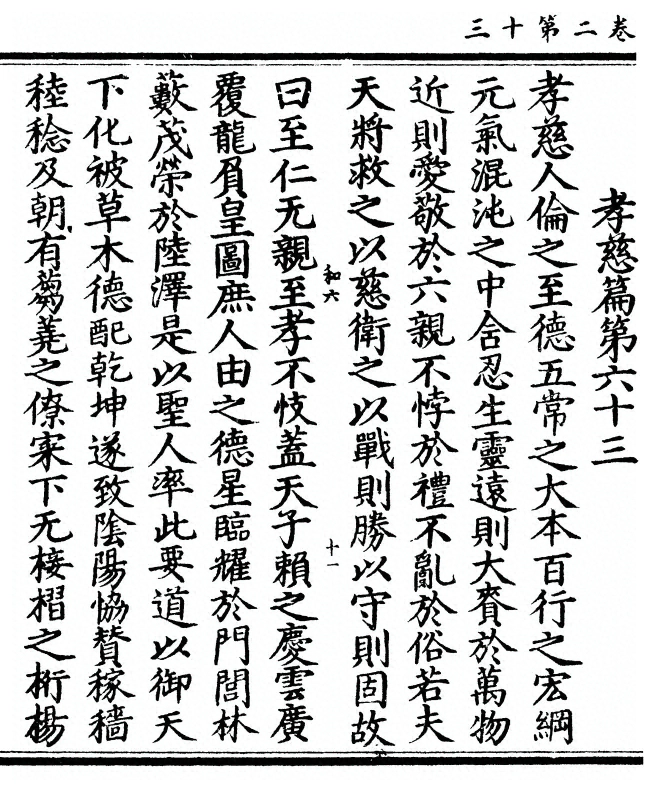 三十第二卷
孝慈篇第六十三
孝慈人倫之至德五常之大本百行之宏綱
元氣混沌之中含忍生靈遠則大賚於萬物
近則愛敬於六親不悖於禮不亂於俗若夫
天將救之以慈衛之以戰則勝以守則固故
和六
十一
曰至仁无親至孝不忮蓋天子賴之慶雲廣
覆龍負皇圖庶人由之德星臨耀於門閭林
藪茂榮於陸澤是以聖人率此要道以御天
下化被草木德配乾坤遂致陰陽恊贊稼穡
稑稔及朝有蒭蕘之僚寀下无椄槢之桁楊